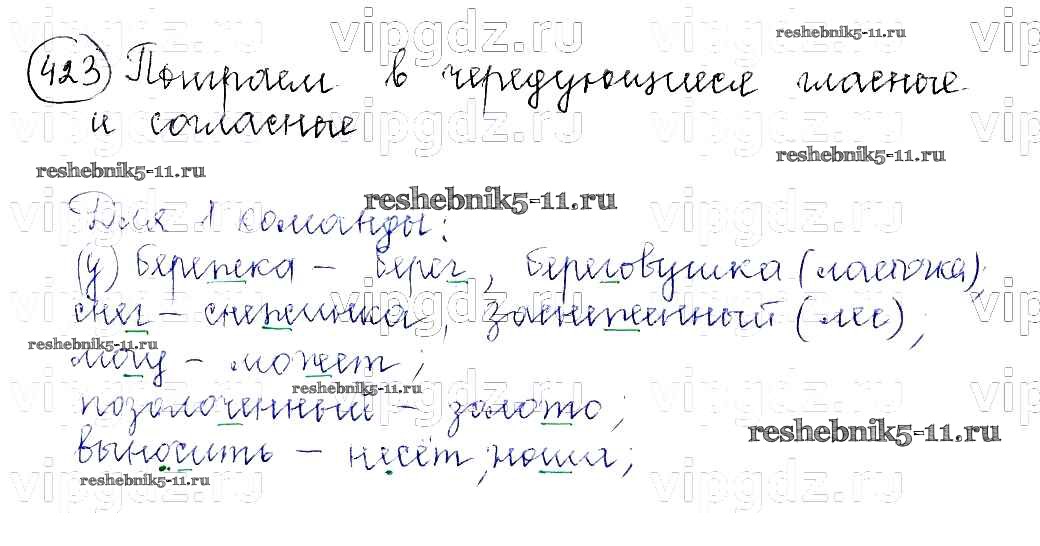 423 Поиграем в чередующиеся гласные
и согласные
Для 1 команды:
(у) Бережка – берег, береговушка (ласточка);
снег – снежинка, заснеженный (лес);
могу – может;
позолоченный – золото;
выносить – несёт, ноша;
reshebnik5-11.ru
reshebnik5-11.ru
reshebnik5-11.ru
reshebnik5-11.ru
reshebnik5-11.ru
reshebnik5-11.ru
reshebnik5-11.ru
reshebnik5-11.ru
vipgdz.ru